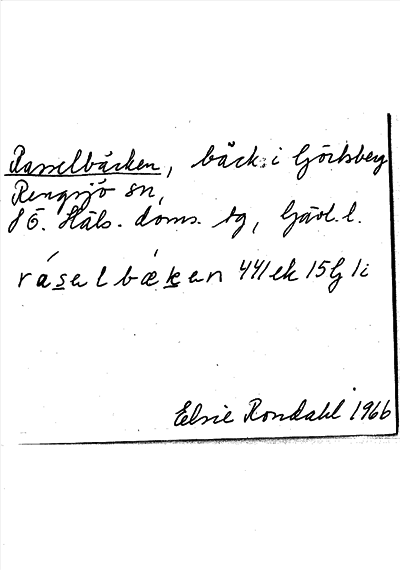 Rasselbäcken, bäck i Görtsberg
Rengsjö sn,
SÖ. Häls. doms. tg, Gävl. l.
rásalbækan 441ek 15G 1i
Elsie Rondahl 1966